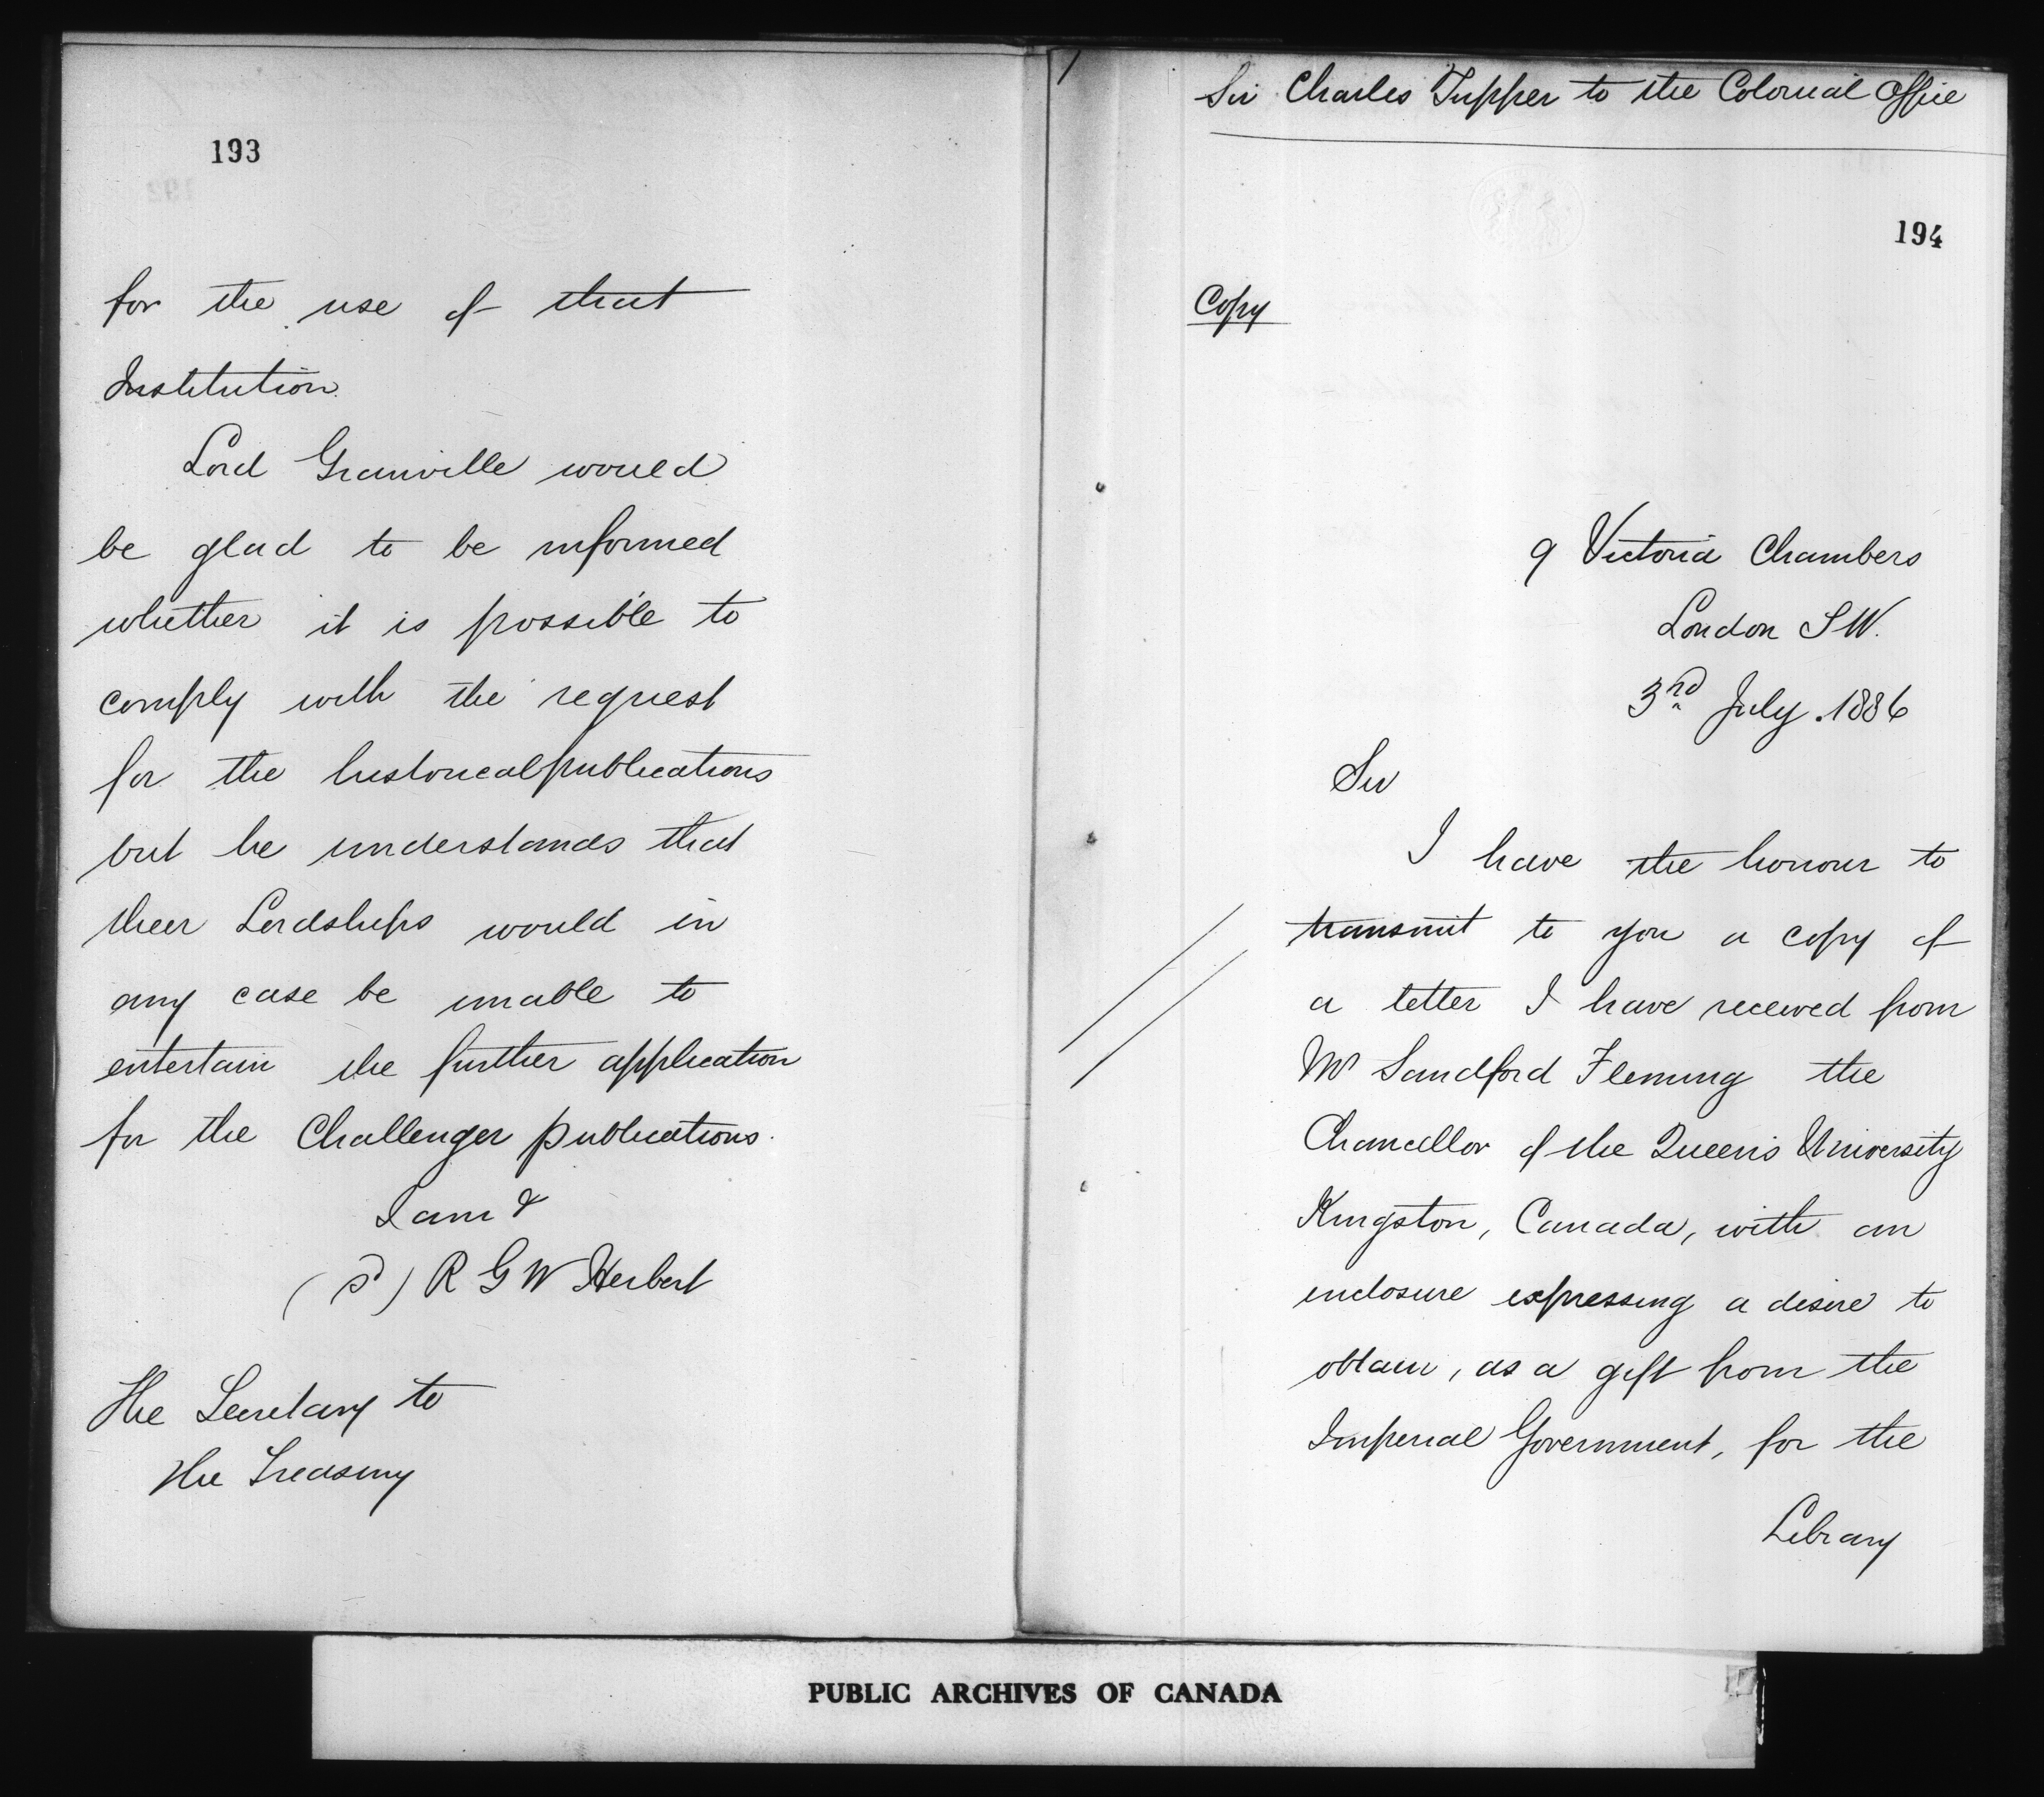 193
for the use of that
Institution.
Lord Granville would
be glad to be informed
whether it is possible to
comply with the request
for the historical publications
but he understands that
their Lordships would in
any case be unable to
entertain the further application
for the Challenger publications.
I am &
(sd) R G W Herbert
The Secretary to
The Treasury
Sir Charles Tupper to the Colonial Office
194
Copy
9 Victoria Chambers
London S W.
3rd July. 1886
Sir
I have the honour to
transmit to you a copy of
a letter I have received from
Mr Sandford Fleming the
Chancellor of the Queen's University
Kingston, Canada, with an
enclosure expressing a desire to
obtain, as a gift from the
Imperial Government, for the
Library
PUBLIC ARCHIVES OF CANADA